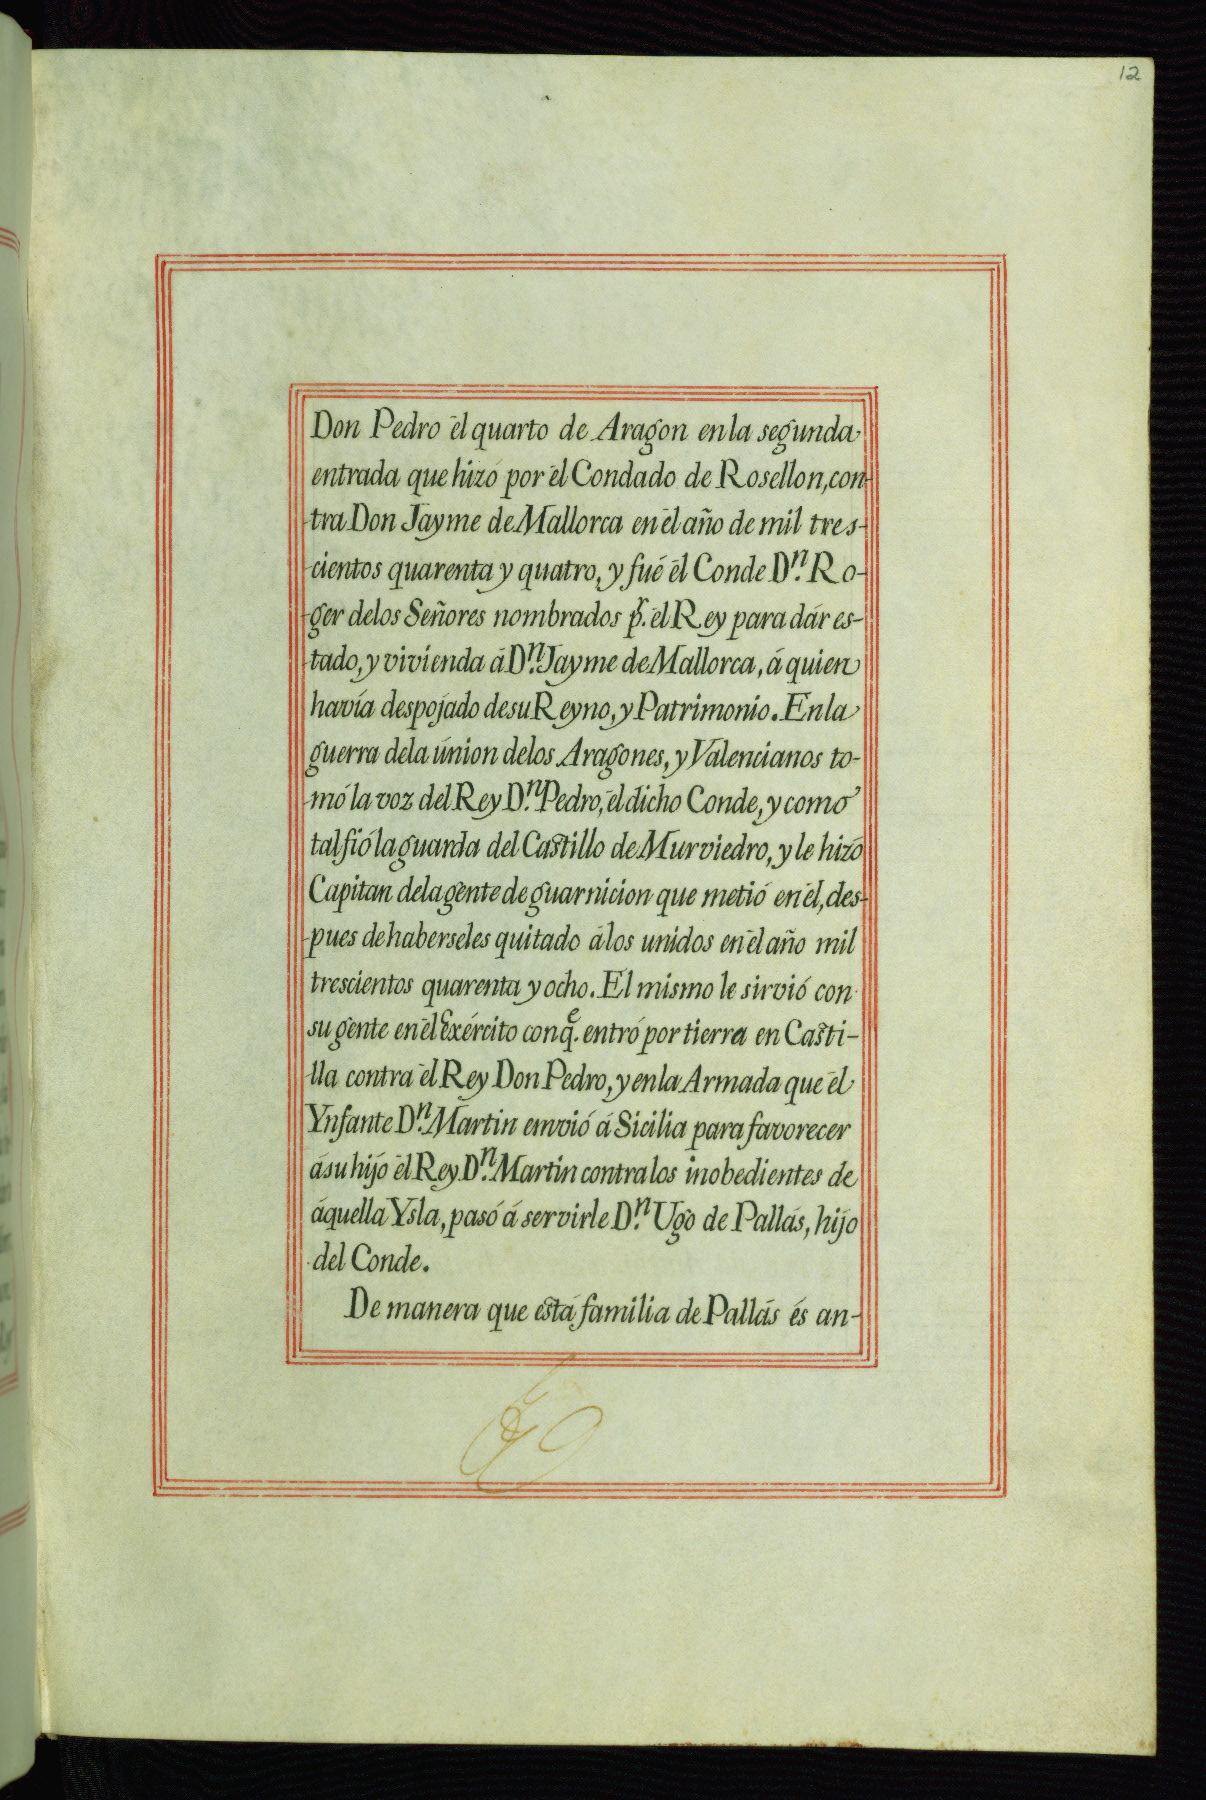 12
Don Pedro el quarto de Aragon en la segunda
entrada que hizó por el Condado de Rosellon, con-
tra Don Jayme de Mallorca en el año de mil tres-
cientos quarenta y quatro, y fué el Conde D.n Ro-
ger delos Señores nombrados p.r el Rey para dár es-
tado, y vivienda á D.n Jayme de Mallorca, á quien
havía despojado de su Reyno, y Patrimonio. En la
guerra dela únion delos Aragones, y Valencianos to-
mó la voz del Rey D.n Pedro, el dicho Conde, y como
tal fió la guarda del Castillo de Murviedro, y le hizó
Capitan dela gente de guarnicion que metió en él, des-
pues de haberseles quitado álos unidos en el año mil
trescientos quarenta y ocho. El mismo le sirvió con
su gente en el Exército con q.e entró por tierra en Casti-
lla contra el Rey Don Pedro, y en la Armada que el
Ynfante D.n Martin envió á Sicilia para favorecer
ásu hijo el Rey D.n Martin contra los inobedientes de
áquella Ysla, pasó á servirle D.n Ugo de Pallás, hijo
del Conde.
De manera que está familia de Pallás és an-